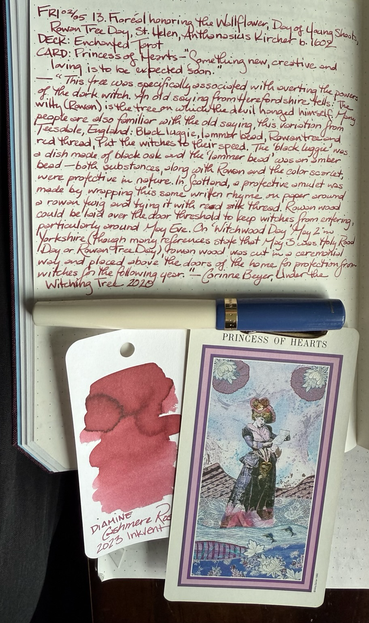 FRI 03/05 13. Floréal honoring the Wallflower, Day of Young Shoots,
Rowan Tree Day, St. Helen, Athanasius Kircher b. 1602
DECK: Enchanted Tarot
CARD: Princess of Hearts - "Something new, creative and
loving is to be expected soon."
— "This tree was specifically associated with averting the powers
of the dark witch. An old saying from Herefordshire tells: The
witty (Rowan) is the tree on which the devil hanged himself. Many
people are also familiar with the old saying, this variation from
Teesdale, England: Black luggie, lammer bead, Rowan tree and
red thread, Put the witches to their speed. The 'black luggie' was
a dish made of black oak and the 'lammer bead' was an amber
bead - both substances, along with Rowan and the color scarlet,
were protective in nature. In Scotland, a protective amulet was
made by wrapping this same written rhyme on paper around
a rowan twig and tying it with red silk thread. Rowan wood
could be laid over the door threshold to keep witches from entering,
particularly around May Eve. On 'Witchwood Day' May 2nd in
Yorkshire (though many references state that May 3 was Holy Rood
Day or Rowan Tree Day), rowan wood was cut in a ceremonial
way and placed above the doors of the home for protection from
witches for the following year." - Corinne Boyer, Under the
Witching Tree 2020
PRINCESS OF HEARTS
DIAMINE
Cashmere Rose
2023 Inkvent